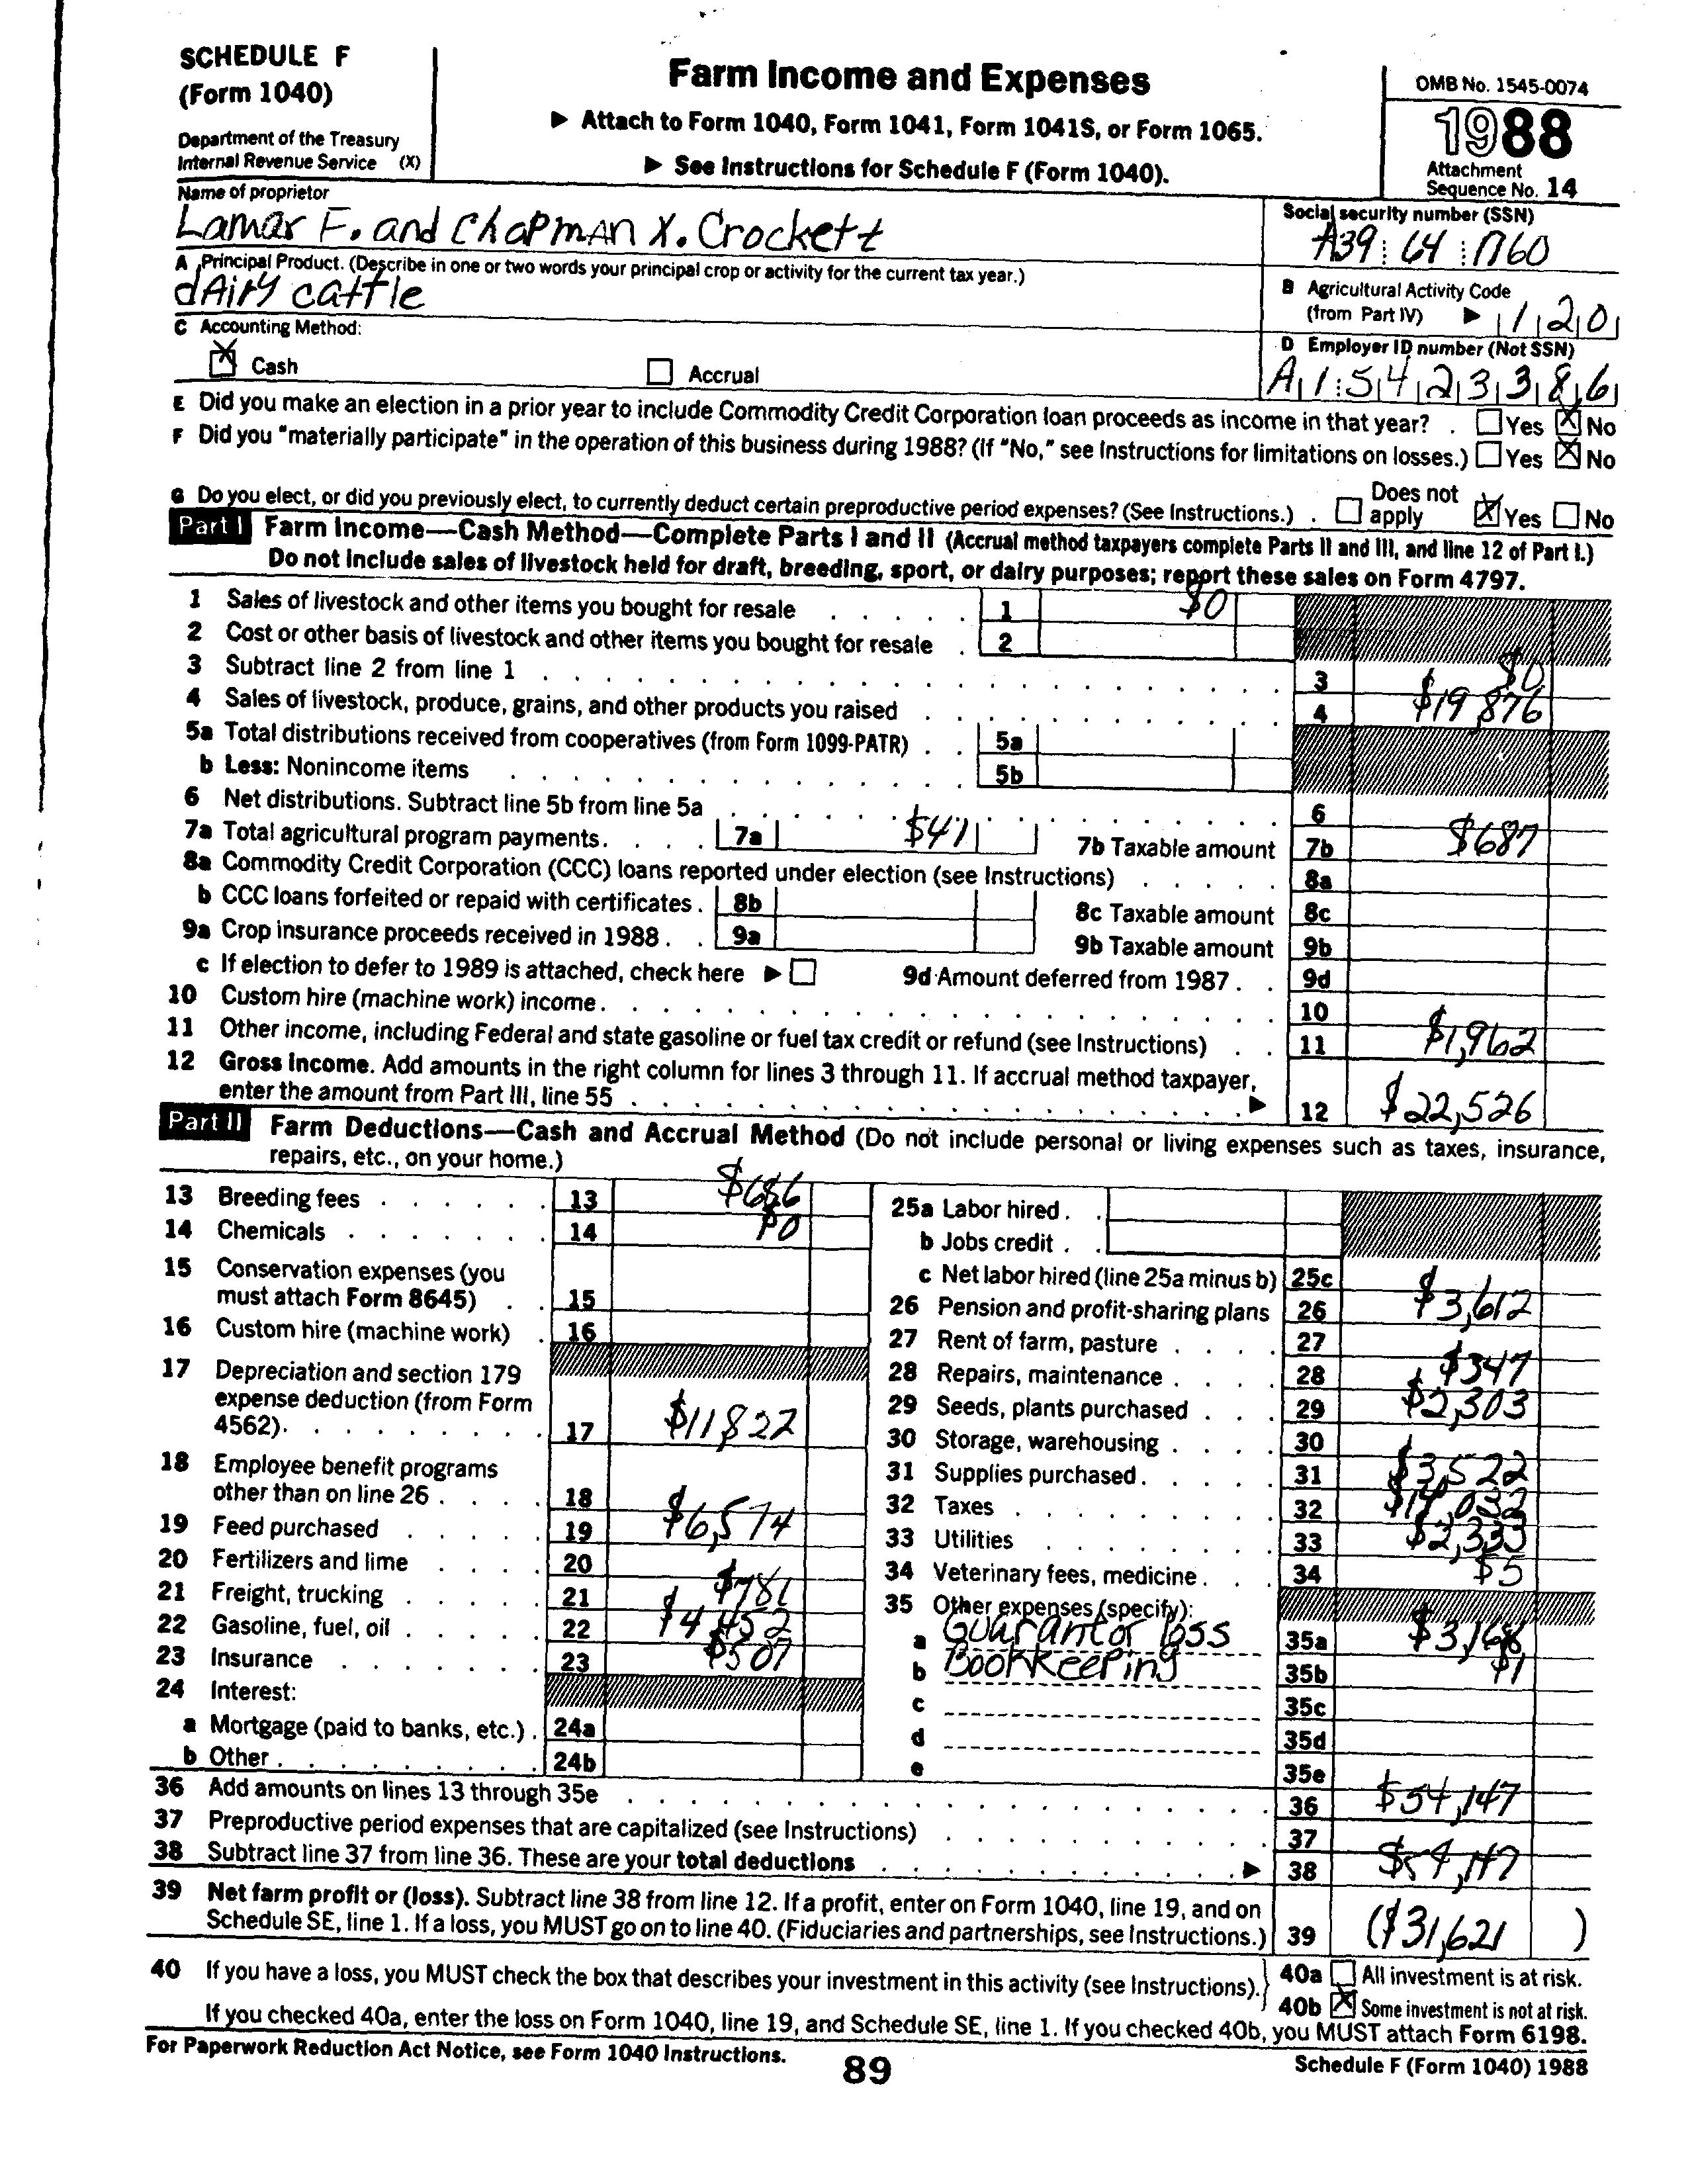 SCHEDULE F
(Form 1040)
Department of the Treasury
Internal Revenue Service (X)
Farm Income and Expenses
▶ Attach to Form 1040, Form 1041, Form 1041S, or Form 1065.
▶ See Instructions for Schedule F (Form 1040).
OMB No. 1545-0074
1988
Attachment
Sequence No. 14
Name of proprietor
Lamar F. and Chapman X. Crockett
Social security number (SSN)
A39 64 1760
A Principal Product. (Describe in one or two words your principal crop or activity for the current tax year.)
dairy cattle
B Agricultural Activity Code
(from Part IV) ▶ 120
C Accounting Method:
Cash
Accrual
D Employer ID number (Not SSN)
A1 5423386
E Did you make an election in a prior year to include Commodity Credit Corporation loan proceeds as income in that year? . Yes X No
F Did you "materially participate" in the operation of this business during 1988? (If "No," see Instructions for limitations on losses.) Yes X No
G Do you elect, or did you previously elect, to currently deduct certain preproductive period expenses? (See Instructions.) . Does not apply X Yes No
Part I Farm Income—Cash Method—Complete Parts I and II (Accrual method taxpayers complete Parts II and III, and line 12 of Part I.)
Do not include sales of livestock held for draft, breeding, sport, or dairy purposes; report these sales on Form 4797.
1 Sales of livestock and other items you bought for resale 1 $0
2 Cost or other basis of livestock and other items you bought for resale 2
3 Subtract line 2 from line 1 3 $0
4 Sales of livestock, produce, grains, and other products you raised 4 $19,876
5a Total distributions received from cooperatives (from Form 1099-PATR) 5a
b Less: Nonincome items 5b
6 Net distributions. Subtract line 5b from line 5a 6
7a Total agricultural program payments. 7a $41 7b Taxable amount 7b $687
8a Commodity Credit Corporation (CCC) loans reported under election (see Instructions) 8a
b CCC loans forfeited or repaid with certificates . 8b 8c Taxable amount 8c
9a Crop insurance proceeds received in 1988 . 9a 9b Taxable amount 9b
c If election to defer to 1989 is attached, check here ▶ 9d Amount deferred from 1987 . 9d
10 Custom hire (machine work) income . 10
11 Other income, including Federal and state gasoline or fuel tax credit or refund (see Instructions) 11 $1,962
12 Gross income. Add amounts in the right column for lines 3 through 11. If accrual method taxpayer,
enter the amount from Part III, line 55 ▶ 12 $22,526
Part II Farm Deductions—Cash and Accrual Method (Do not include personal or living expenses such as taxes, insurance,
repairs, etc., on your home.)
13 Breeding fees 13 $686
14 Chemicals 14 $0
15 Conservation expenses (you
must attach Form 8645) 15
16 Custom hire (machine work) 16
17 Depreciation and section 179
expense deduction (from Form
4562). 17 $11,822
18 Employee benefit programs
other than on line 26 . 18
19 Feed purchased 19 $6,574
20 Fertilizers and lime 20
21 Freight, trucking 21 $781
22 Gasoline, fuel, oil 22 $4,452
23 Insurance 23 $507
24 Interest:
a Mortgage (paid to banks, etc.) . 24a
b Other . 24b
25a Labor hired .
b Jobs credit .
c Net labor hired (line 25a minus b) 25c
26 Pension and profit-sharing plans 26 $3,612
27 Rent of farm, pasture 27
28 Repairs, maintenance 28 $347
29 Seeds, plants purchased 29 $2,303
30 Storage, warehousing 30
31 Supplies purchased . 31 $3,522
32 Taxes 32
33 Utilities 33 $2,333
34 Veterinary fees, medicine . 34 $5
35 Other expenses (specify):
a Guarantor loss 35a $3,168
b Bookkeeping 35b $1
c 35c
d 35d
e 35e
36 Add amounts on lines 13 through 35e 36 $54,147
37 Preproductive period expenses that are capitalized (see Instructions) 37
38 Subtract line 37 from line 36. These are your total deductions ▶ 38 $54,147
39 Net farm profit or (loss). Subtract line 38 from line 12. If a profit, enter on Form 1040, line 19, and on
Schedule SE, line 1. If a loss, you MUST go on to line 40. (Fiduciaries and partnerships, see Instructions.) 39 ($31,621 )
40 If you have a loss, you MUST check the box that describes your investment in this activity (see Instructions). 40a All investment is at risk.
40b X Some investment is not at risk.
If you checked 40a, enter the loss on Form 1040, line 19, and Schedule SE, line 1. If you checked 40b, you MUST attach Form 6198.
For Paperwork Reduction Act Notice, see Form 1040 Instructions.
89
Schedule F (Form 1040) 1988